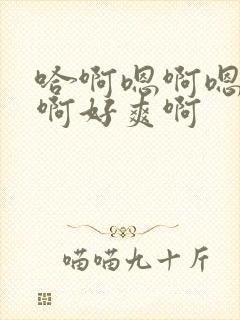 哈啊嗯啊嗯
啊好爽啊
喵喵九十斤